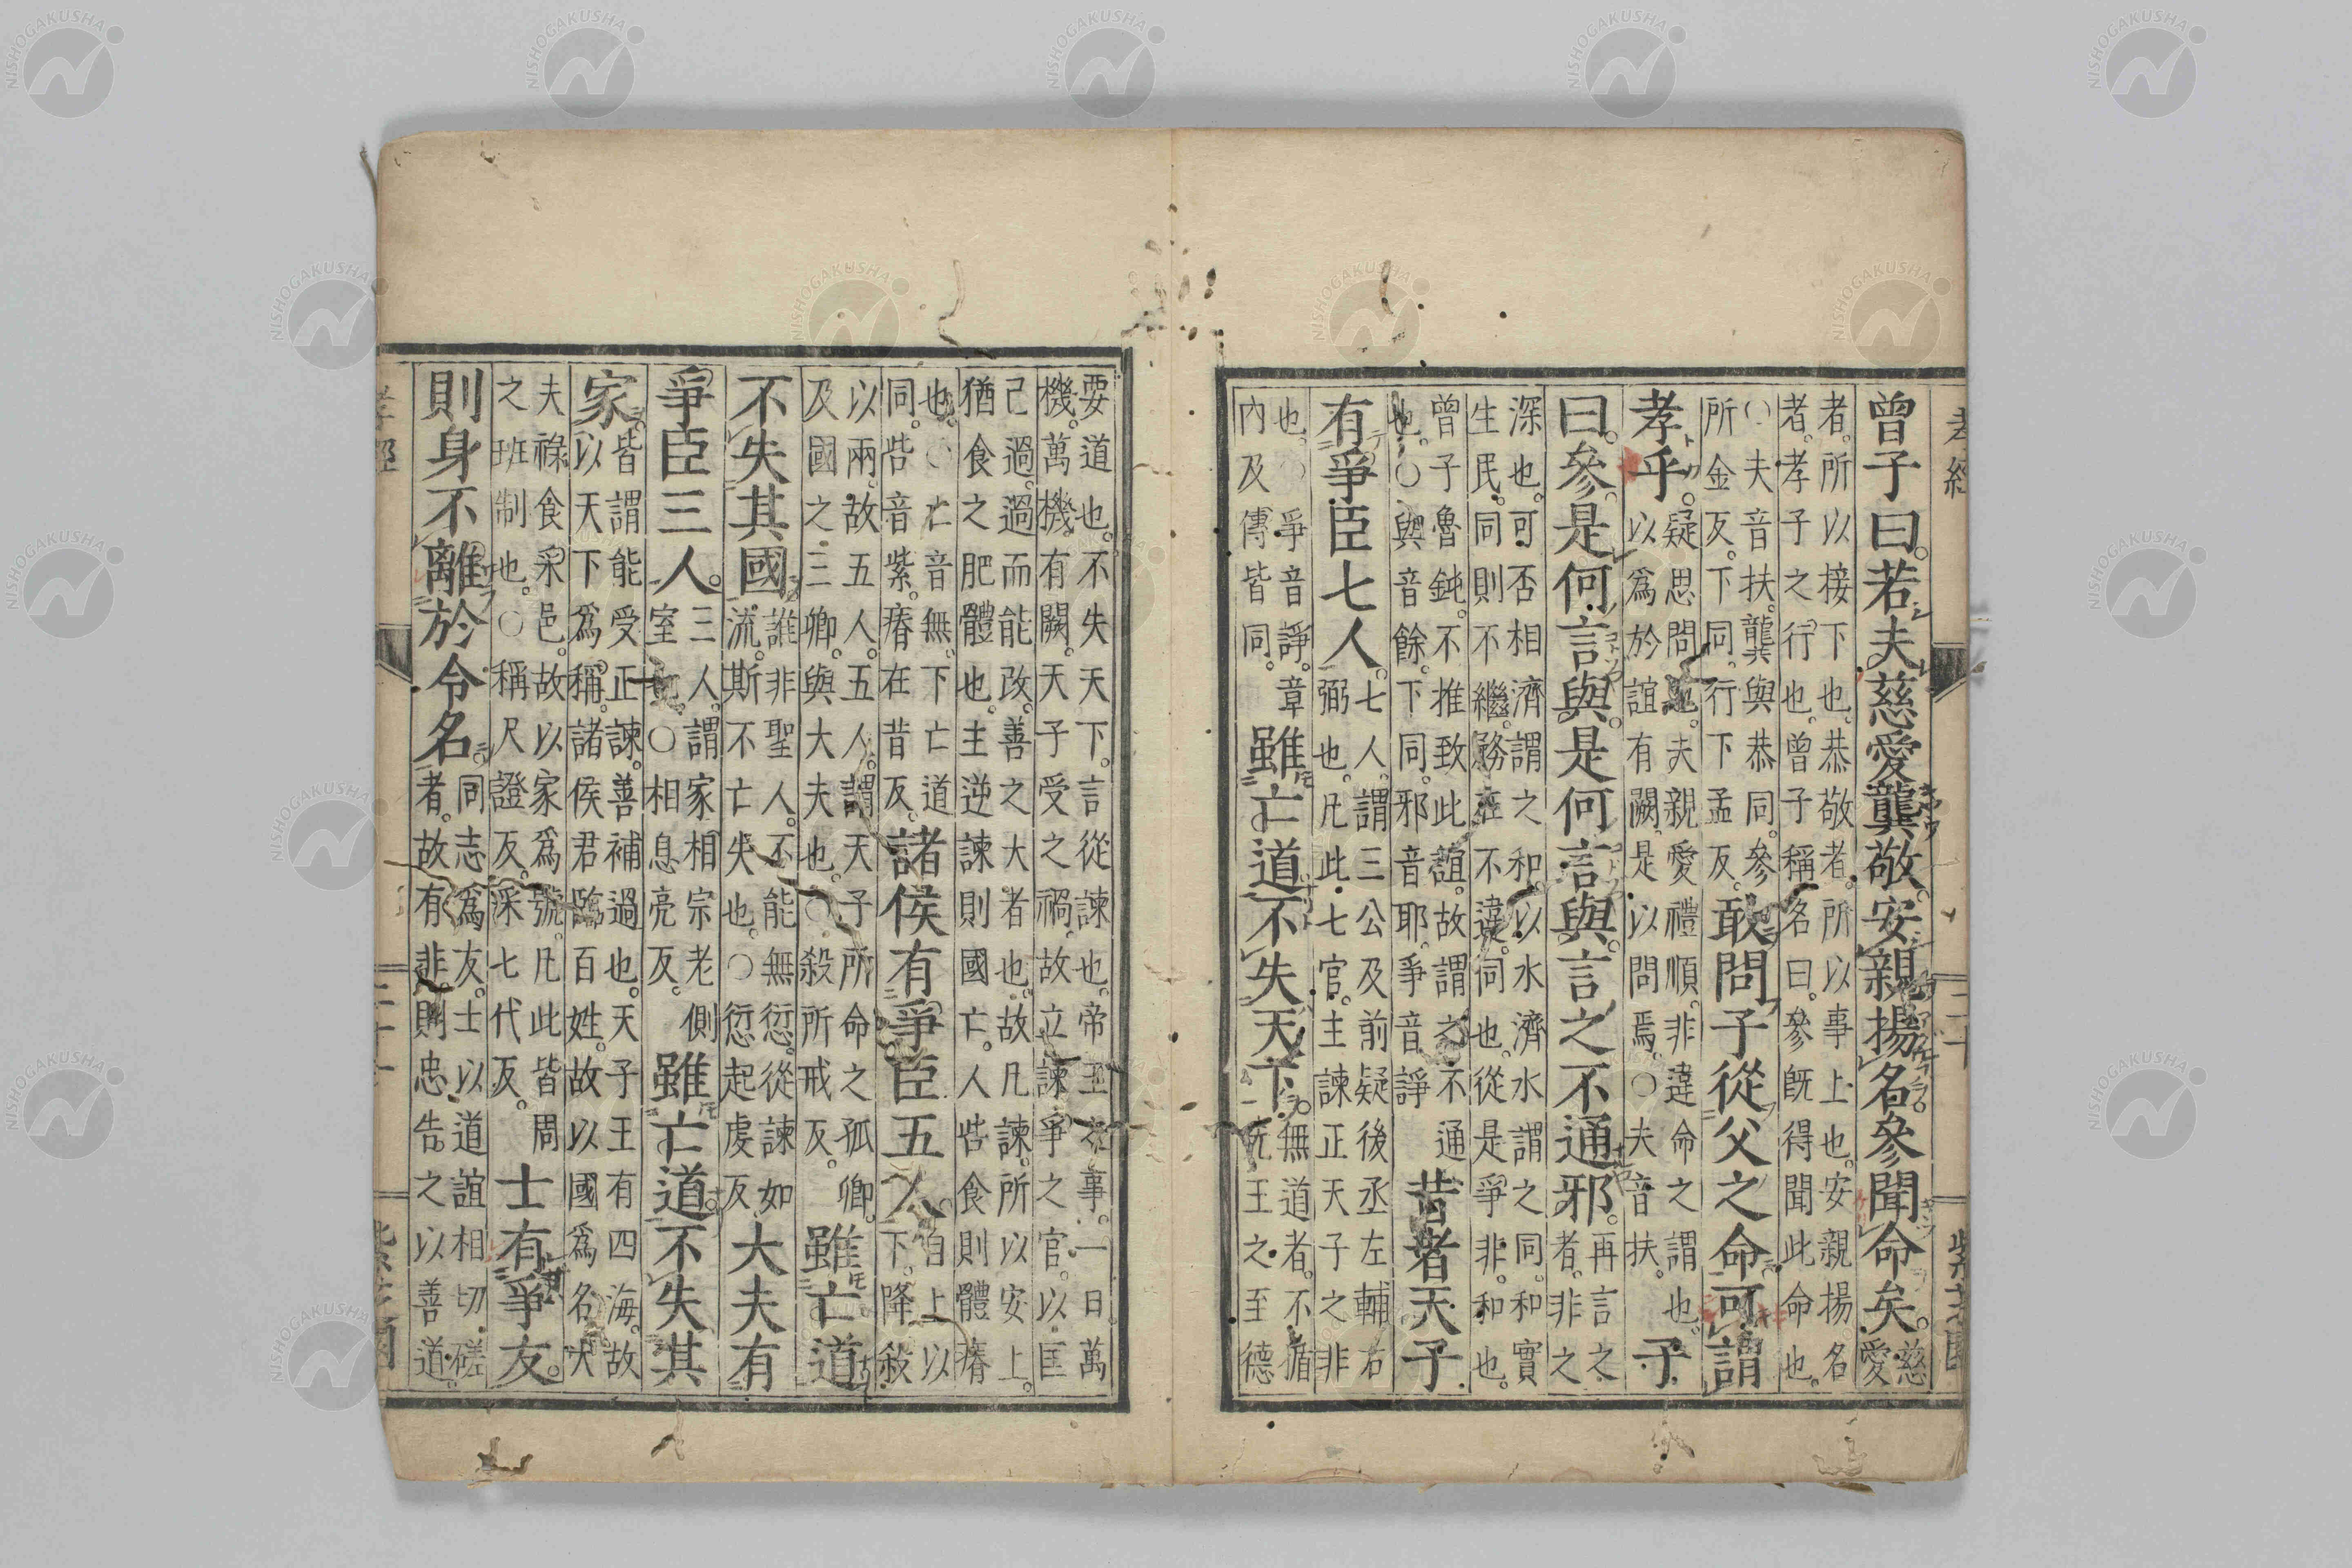 孝經
曾子曰。若夫慈愛龔敬。安親揚名。參聞命矣。慈
愛
者。所以接下也。恭敬者。所以事上也。安親揚名
者。孝子之行也。曾子稱名曰。參既得聞此命也。
○夫音扶。龔與恭同。參
所金反。下同。行下孟反。
敢問子從父之命。可謂
孝乎。
疑思問也。夫親愛禮順。非違命之謂也。
以爲於誼有闕。是以問焉。○夫音扶。
子
曰。參。是何言與。是何言與。言之不通邪。
再言之
者。非之
深也。可否相濟謂之和。以水濟水謂之同。和實
生民。同則不繼。務在不違。同也。從是爭非。和也。
曾子魯鈍。不推致此誼。故謂之不通
也。○與音餘。下同。邪音耶。爭音諍
昔者天子
有爭臣七人。
七人。謂三公及前疑後丞左輔右
弼也。凡此七官。主諫正天子之非
也。○爭音諍。章
內及傳皆同。
雖亡道。不失天下。
無道者。不循
先王之至德
要道也。不失天下。言從諫也。帝王之事。一日萬
機。萬機有闕。天子受之禍。故立諫爭之官。以匡
己過。過而能改。善之大者也。故凡諫。所以安上。
猶食之肥體也。主逆諫則國亡。人呰食則體瘠
也。○亡音無。下亡道
同。呰音紫。瘠在昔反。
諸侯有爭臣五人。
自上以
下。降殺
以兩。故五人。五人。謂天子所命之孤卿。
及國之三卿。與大夫也。○殺所戒反。
雖亡道
不失其國。
誰非聖人。不能無愆。從諫如
流。斯不亡失也。○愆起虔反。
大夫有
爭臣三人。
三人。謂家相宗老側
室也。○相息亮反。
雖亡道。不失其
家。
皆謂能受正諫。善補過也。天子王有四海。故
以天下爲稱。諸侯君臨百姓。故以國爲名。大
夫祿食采邑。故以家爲號。凡此皆周
之班制也。○稱尺證反。采七代反。
士有爭友。
則身不離於令名。
同志爲友。士以道誼相切磋
者。故有非。則忠告之以善道。
孝經
NISHOGAKUSHA